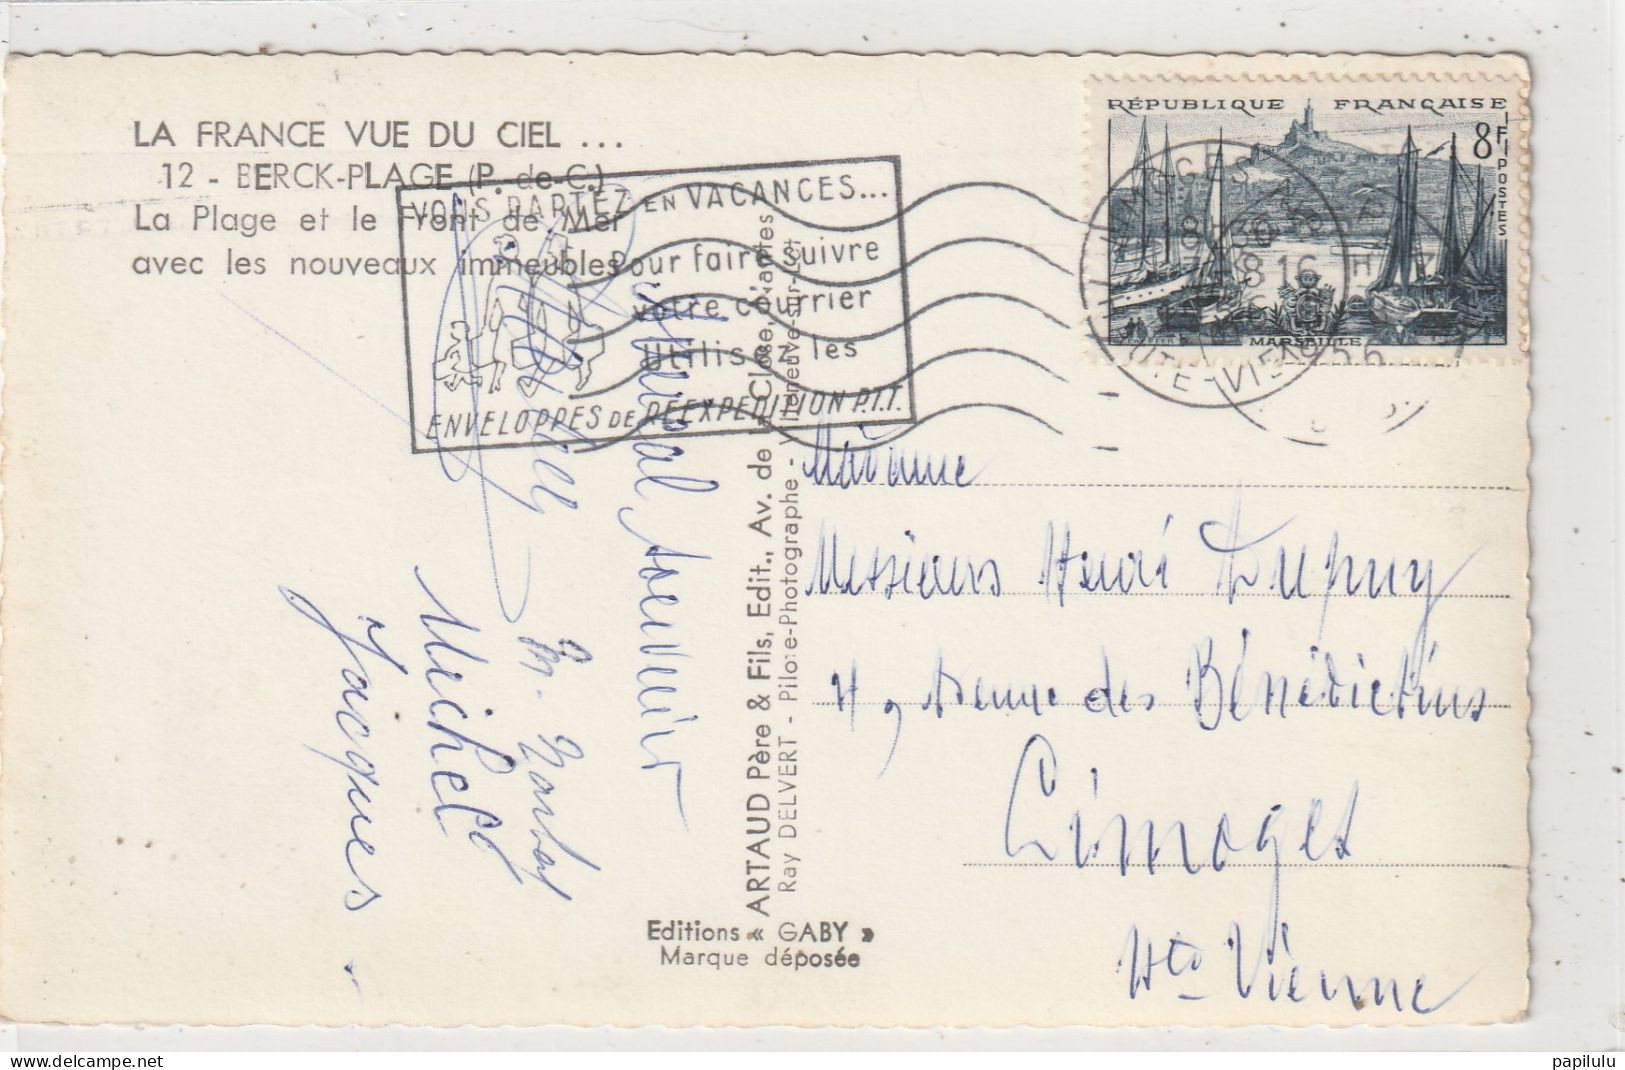 LA FRANCE VUE DU CIEL ...
12 - BERCK-PLAGE (P.-de-C.)
La Plage et le Front de Mer
avec les nouveaux immeubles
VOUS PARTEZ EN VACANCES...
Pour faire suivre
votre courrier
Utilisez les
ENVELOPPES DE RÉEXPEDITION P.T.T.
RÉPUBLIQUE FRANÇAISE
8F
POSTES
MARSEILLE
souvenir
Michel
Jacques
ARTAUD Père & Fils, Edit., Av. de la Close, Nantes
Ray DELVERT - Pilote-Photographe - Villeneuve-sur-Lot
Editions « GABY »
Marque déposée
Madame
Messieurs Henri Dupuy
Avenue des Bénédictins
Limoges
Hte Vienne
papilulu